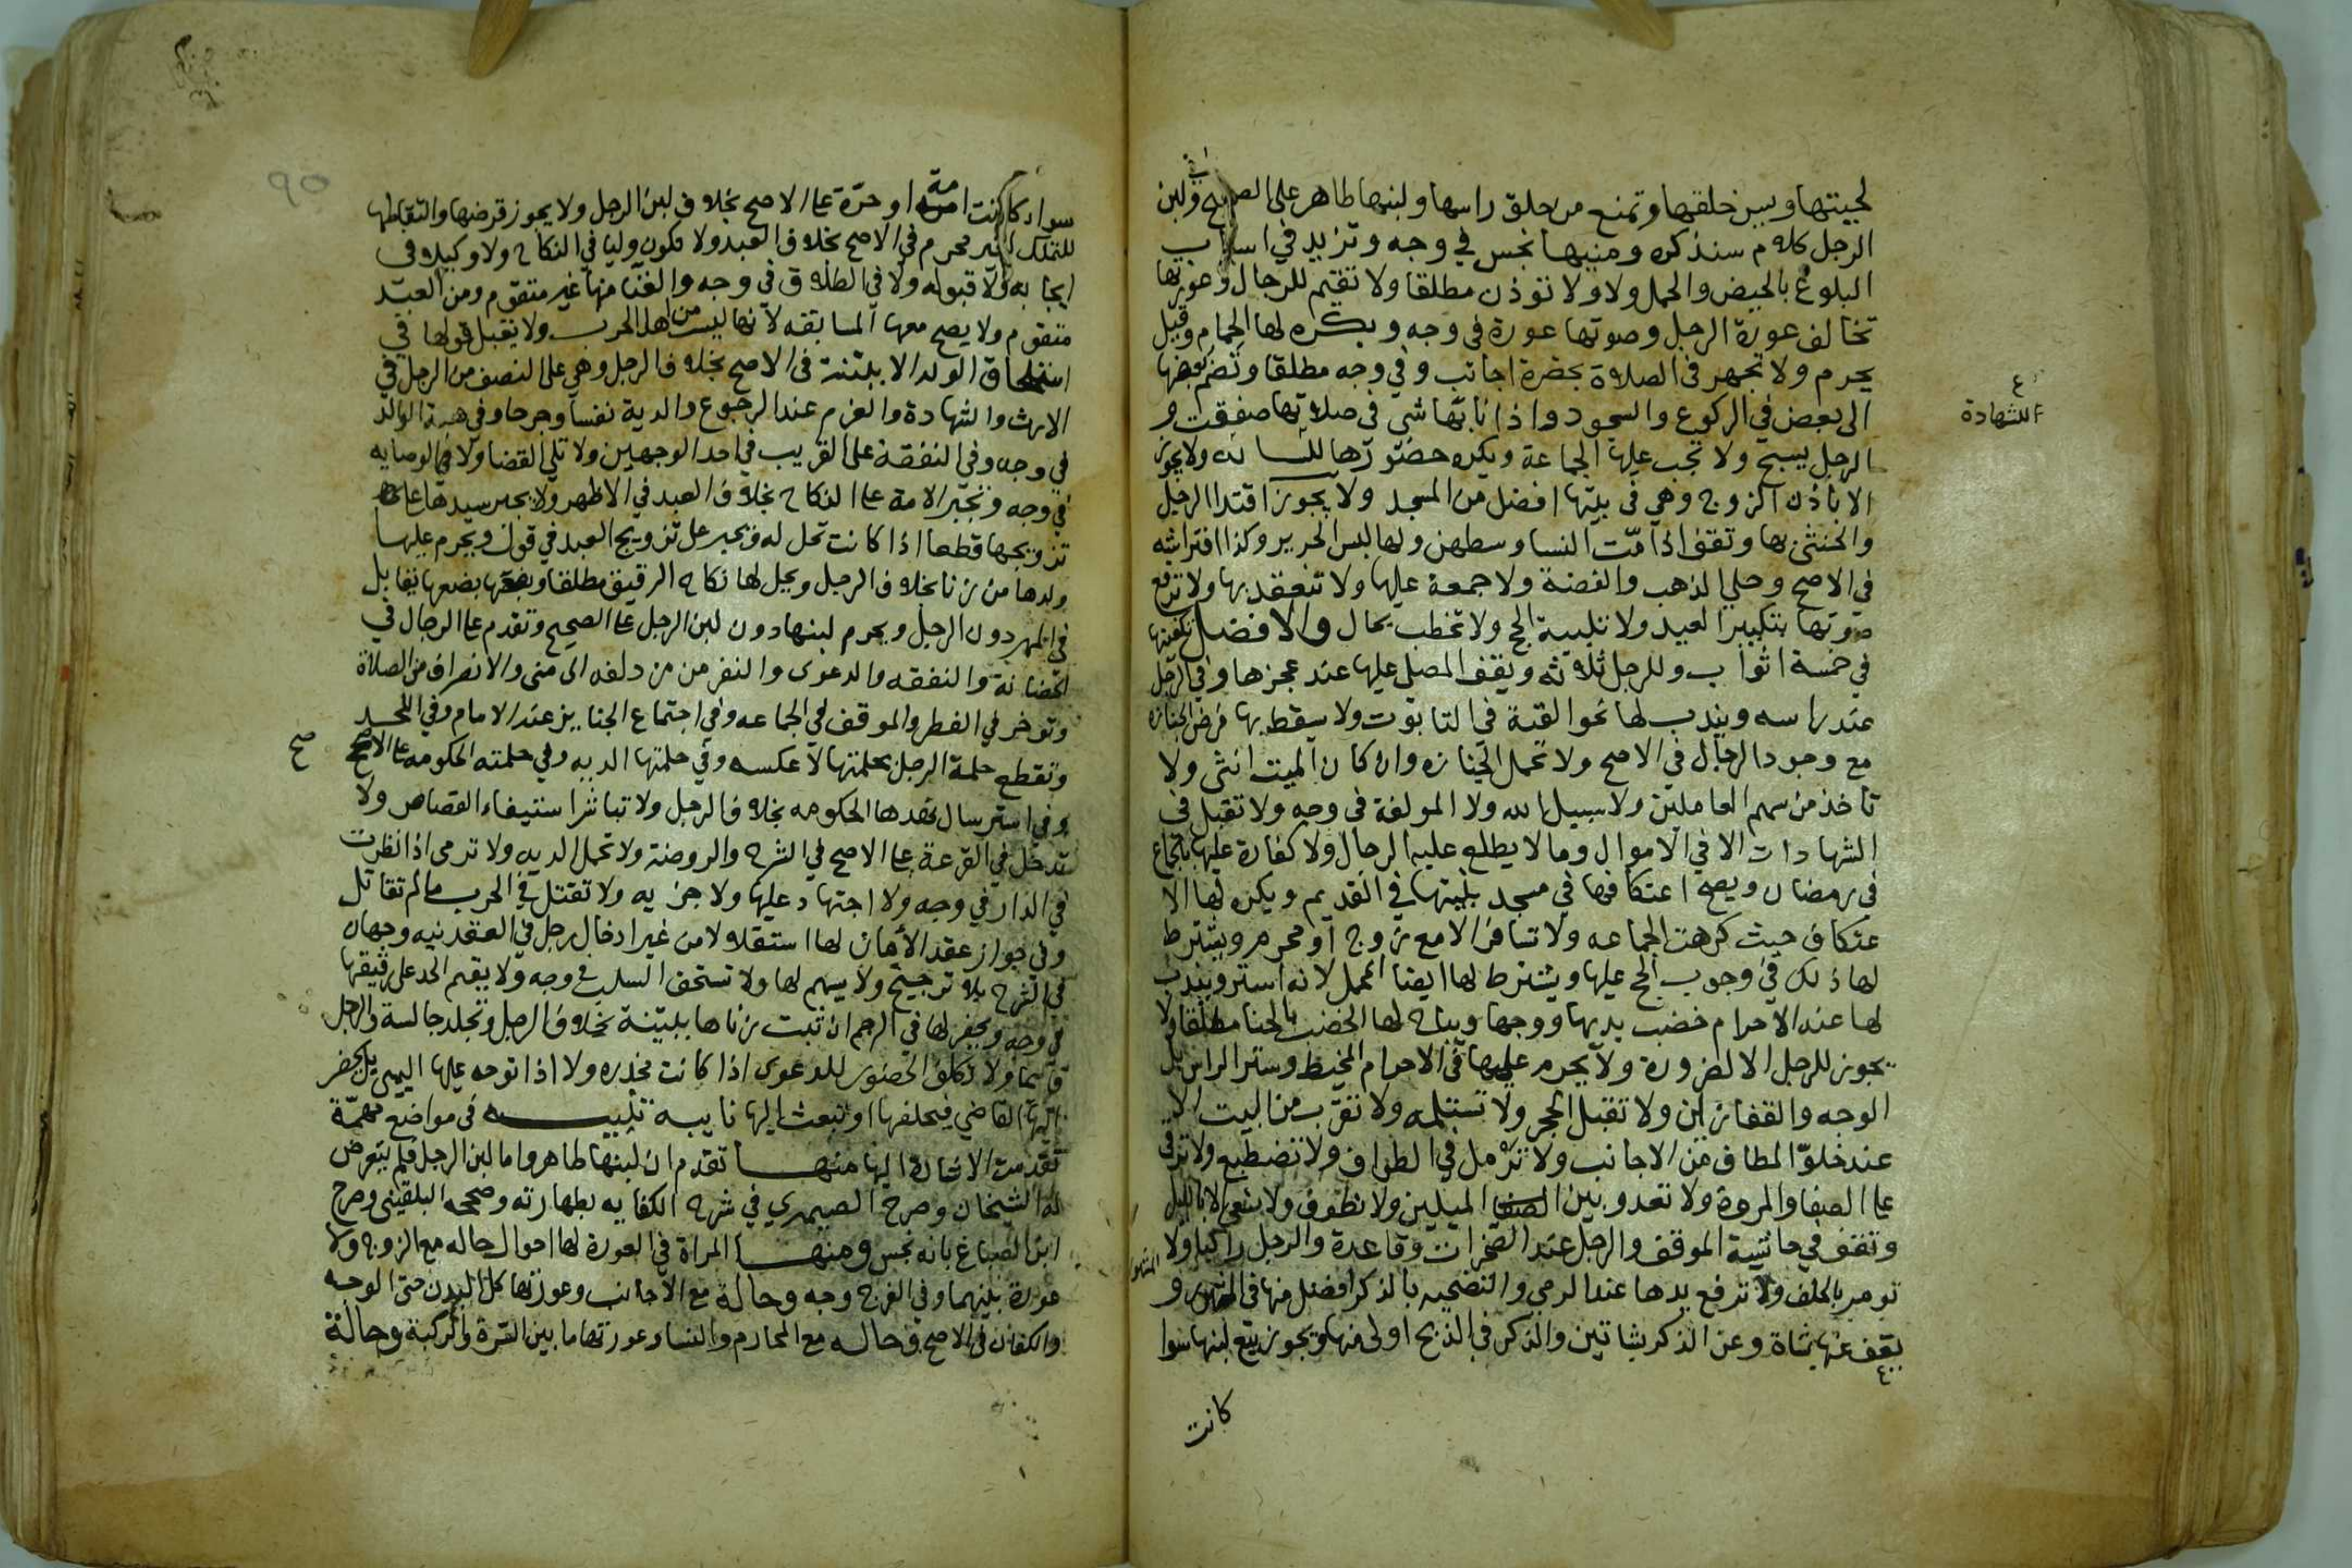 لحيتها ويبين خلقها وتمنع من حلق راسها ولبنها طاهر على الصحيح وفي لبن
الرجل كلام سنذكره ومنيها نجس في وجه وتزيد في اسباب
البلوغ بالحيض والحمل ولا ولا توذن مطلقا ولا تقيم للرجال وعورتها
تخالف عورة الرجل وصوتها عورة في وجه ويكره لها الحمام وقيل
يحرم ولا تجهر في الصلاة بحضرة اجانب وفي وجه مطلقا وتضم بعضها
الى بعض في الركوع والسجود واذا نابها شي في صلاتها صفقت و
الرجل يسبح ولا تجب عليها الجماعة ويكره حضورها للشابه ولا يجوز
الا باذن الزوج وهي في بيتها افضل من المسجد ولا يجوز اقتدا الرجل
والخنثى بها وتقف اذا امّت النسا وسطهن ولها لبس الحرير وكذا افتراشه
في الاصح وحلي الذهب والفضة ولا جمعة عليها ولا تنعقد بها ولا ترفع
صوتها بتكبير العيد ولا تلبية الحج ولا تخطب بحال والافضل تكفينها
في خمسة اثواب وللرجل ثلاثه ويقف المصلي عليها عند عجزها وفي الرجل
عند راسه ويندب لها نحو القبة في التابوت ولا يسقط بها فرض الجنازه
مع وجود الرجال في الاصح ولا تحمل الجنازه وان كان الميت انثى ولا
تاخذ من سهم العاملين ولا سبيل الله ولا المولفة في وجه ولا تقبل في
الشهادات الا في الاموال وما لا يطلع عليه الرجال ولا كفارة عليها بالجماع
في رمضان ويصح اعتكافها في مسجد بيتها في القديم ويكره لها الا
عتكاف حيث كرهت الجماعه ولا تسافر الا مع زوج او محرم ويشترط
لها ذلك في وجوب الحج عليها ويشترط لها ايضا المحمل لانه استر ويندب
لها عند الاحرام خضب يديها ووجهها ويباح لها الخضب بالحنا مطلقا ولا
يجوز للرجل الا لضرورة ولا يحرم عليها في الاحرام المخيط وستر الراس بل
الوجه والقفازين ولا تقبل الحجر ولا تستلمه ولا تقرب من البيت الا
عند خلوّ المطاف من الاجانب ولا ترمل في الطواف ولا تضطبع ولا ترقى
على الصفا والمروة ولا تعدو بين الميلين ولا تطوف ولا تسعى الا بالليل
وتقف في حاشية الموقف والرجل عند الصخرات وقاعدة والرجل راكبا ولا
تومر بالحلف ولا ترفع يدها عند الرمي والتضحيه بالذكر افضل منها في المشهور و
يعق عنها بشاة وعن الذكر بشاتين والذكر في الذبح اولى منها ويجوز بيع لبنها سوا
كانت
الشهادة
٩٥
سواء كانت امة او حرّة على الاصح بخلاف لبن الرجل ولا يجوز قرضها والتقاطها
للتملك لغير محرم في الاصح بخلاف العبد ولا تكون وليا في النكاح ولا وكيلا في
ايجابه ولا قبوله ولا في الطلاق في وجه والغنا منها غير متقوم ومن العبد
متقوم ولا يصح معها المسابقه لانها ليست من اهل الحرب ولا يقبل قولها في
استلحاق الولد الا ببينة في الاصح بخلاف الرجل وهي على النصف من الرجل في
الارث والشهادة والغرم عند الرجوع والدية نفسا وجرحا وفي هبة الوالد
في وجه وفي النفقة على القريب في احد الوجهين ولا تلي القضا ولا في الوصايه
في وجه وتجبر الامة على النكاح بخلاف العبد في الاظهر ولا يجبر سيدها على
تزويجها قطعا اذا كانت تحل له ويجبر على تزويج العبد في قول ويحرم عليها
ولدها من زنا بخلاف الرجل ويحل لها نكاح الرقيق مطلقا وبضعها يقابل
في المهر دون الرجل ويحرم لبنها دون لبن الرجل على الصحيح وتقدم على الرجال في
الحضانة والنفقه والدعوى والنفر من مزدلفه الى منى والانصراف من الصلاة
وتوخر في الفطر والموقف في الجماعه وفي اجتماع الجنايز عند الامام وفي اللحد
وتقطع حلمة الرجل بحلمتها لا عكسه وفي حلمتها الديه وفي حلمته الحكومه على الاصح
صح
وفي استرسال نهدها الحكومه بخلاف الرجل ولا تباشر استيفاء القصاص ولا
تدخل في القرعة على الاصح في الشرح والروضة ولا تحمل الديه ولا ترمى اذا نظرت
في الدار في وجه ولا اجتهاد عليها ولا جزيه ولا تقتل في الحرب ما لم تقاتل
وفي جواز عقد الامان لها استقلالا من غير ادخال رجل في العقد فيه وجهان
في الشرح بلا ترجيح ولا يسهم لها ولا تستحق السلب في وجه ولا يقيم الحد على رقيقها
في وجه ويحفر لها في الرجم ان ثبت زناها ببينة بخلاف الرجل وتجلد جالسة والرجل
قايما ولا تكلف الحضور للدعوى اذا كانت مخدره ولا اذا توجه عليها اليمين بل يحضر
اليها القاضي فيحلفها او يبعث اليها نايبه تنبيه في مواضع مهمّة
تقدمت الاشارة اليها منها تقدم ان لبنها طاهر واما لبن الرجل فلم يتعرض
له الشيخان وصرح الصيمري في شرح الكفايه بطهارته وصححه البلقيني وصرح
ابن الصباغ بانه نجس ومنها المراة في العورة لها احوال حاله مع الزوج ولا
عورة بينهما وفي الفرج وجه وحالة مع الاجانب وعورتها كل البدن حتى الوجه
والكفان في الاصح وحاله مع المحارم والنسا وعورتها ما بين السرة والركبة وحالة